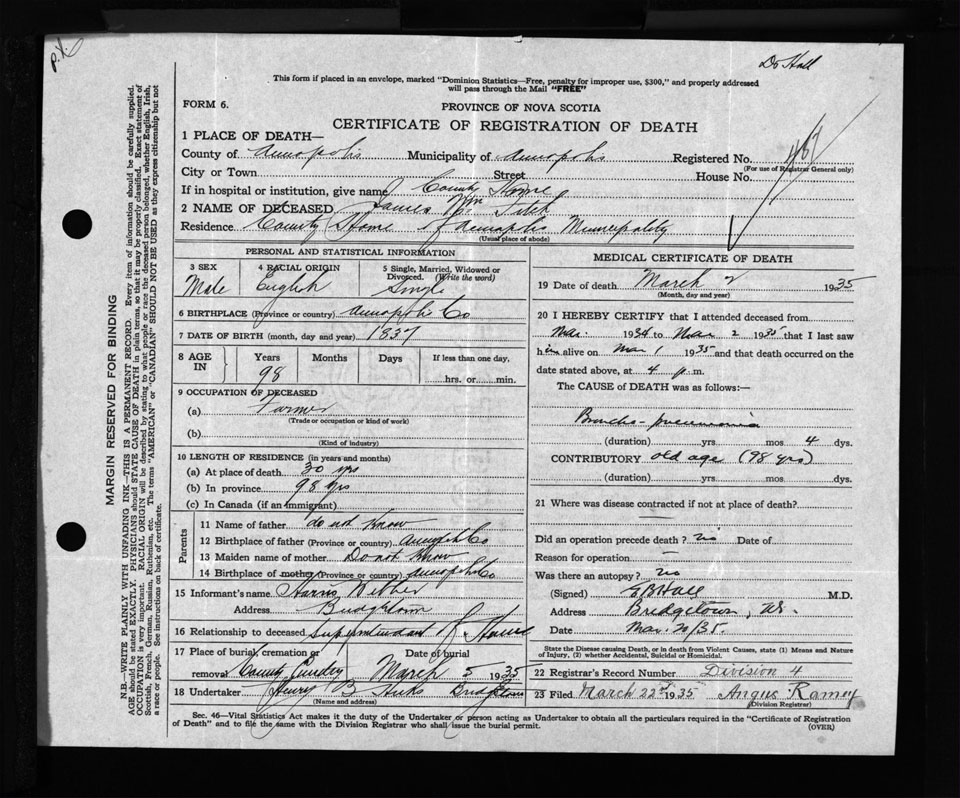 P.X.
Dr Hall
This form if placed in an envelope, marked "Dominion Statistics—Free, penalty for improper use, $300," and properly addressed
will pass through the Mail "FREE"
FORM 6.
PROVINCE OF NOVA SCOTIA
CERTIFICATE OF REGISTRATION OF DEATH
1 PLACE OF DEATH—
County of Annapolis Municipality of Annapolis Registered No.
(For use of Registrar General only)
City or Town Street House No.
If in hospital or institution, give name County Home
2 NAME OF DECEASED James Wm
Residence County Home of Annapolis Municipality
(Usual place of abode)
PERSONAL AND STATISTICAL INFORMATION
3 SEX 4 RACIAL ORIGIN 5 Single, Married, Widowed or
Divorced. (Write the word)
Male English Single
6 BIRTHPLACE (Province or country) Annapolis Co
7 DATE OF BIRTH (month, day and year) 1837
8 AGE IN Years Months Days If less than one day,
98 hrs. or min.
9 OCCUPATION OF DECEASED
(a) Farmer
(Trade or occupation or kind of work)
(b)
(Kind of industry)
10 LENGTH OF RESIDENCE (in years and months)
(a) At place of death 30 yrs
(b) In province 98 yrs
(c) In Canada (if an immigrant)
Parents
11 Name of father do not know
12 Birthplace of father (Province or country) Annapolis Co
13 Maiden name of mother Do not know
14 Birthplace of mother (Province or country) Annapolis Co
15 Informant's name Harris
Address Bridgetown
16 Relationship to deceased Superintendent of Home
17 Place of burial, cremation or Date of burial
removal County March 5 1935
18 Undertaker Henry B Hicks Bridgetown
(Name and address)
MEDICAL CERTIFICATE OF DEATH
19 Date of death March 2 1935
(Month, day and year)
20 I HEREBY CERTIFY that I attended deceased from
Mar. 1934 to Mar 2 1935 that I last saw
him alive on Mar 1 1935 and that death occurred on the
date stated above, at 4 p.m.
The CAUSE OF DEATH was as follows:—
Broncho-pneumonia
(duration) yrs. mos. 4 dys.
CONTRIBUTORY old age (98 yrs)
(duration) yrs. mos. dys.
21 Where was disease contracted if not at place of death?
Did an operation precede death? no Date of
Reason for operation
Was there an autopsy? no
(Signed) Hall M.D.
Address Bridgetown, NS.
Date Mar. 20/35.
State the Disease causing Death, or in death from Violent Causes, state (1) Means and Nature
of Injury, (2) whether Accidental, Suicidal or Homicidal.
22 Registrar's Record Number Division 4
23 Filed March 22nd 1935 Angus Ramey
(Division Registrar)
Sec. 46—Vital Statistics Act makes it the duty of the Undertaker or person acting as Undertaker to obtain all the particulars required in the "Certificate of Registration
of Death" and to file the same with the Division Registrar who shall issue the burial permit. (OVER)
MARGIN RESERVED FOR BINDING
N.B.—WRITE PLAINLY WITH UNFADING INK—THIS IS A PERMANENT RECORD. Every item of information should be carefully supplied.
AGE should be stated EXACTLY. PHYSICIANS should STATE CAUSE OF DEATH in plain terms, so that it may be properly classified. Exact statement of
OCCUPATION is very important. RACIAL ORIGIN will be described by stating to what people or race the deceased person belonged, whether English, Irish,
Scottish, French, German, Russian, Ruthenian, etc. The terms "AMERICAN" or "CANADIAN" SHOULD NOT BE USED as they express citizenship but not
a race or people. See instructions on back of certificate.